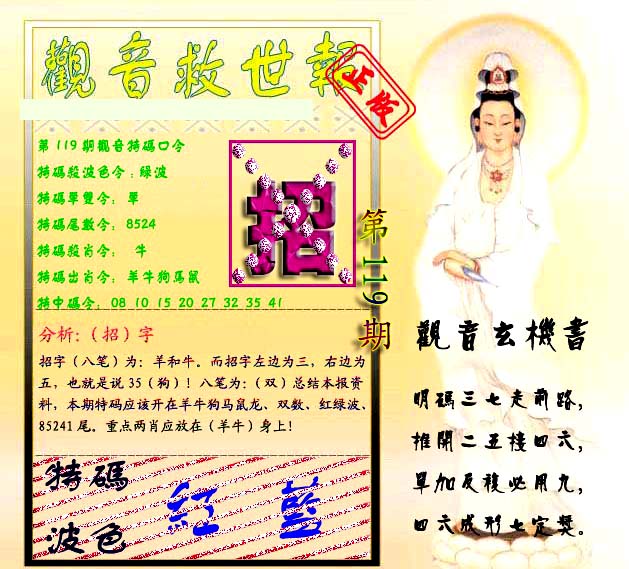 觀音救世報
正版
第119期觀音特碼口令
特碼殺波色令:綠波
特碼單雙令: 單
特碼尾數令: 8524
特碼殺肖令: 牛
特碼出肖令: 羊牛狗馬鼠
特中碼令: 08 10 15 20 27 32 35 41
招
第119期
分析:(招)字
招字(八笔)为:羊和牛。而招字左边为三,右边为
五,也就是说35(狗)!八笔为:(双)总结本报资
料,本期特码应该开在羊牛狗馬鼠龙、双数、红绿波、
85241尾。重点两肖应放在(羊牛)身上!
特碼
波色
紅 藍
觀音玄機書
明碼三七走前路,
推開二五樓四六,
單加及複必用九,
四六成形七定獎。